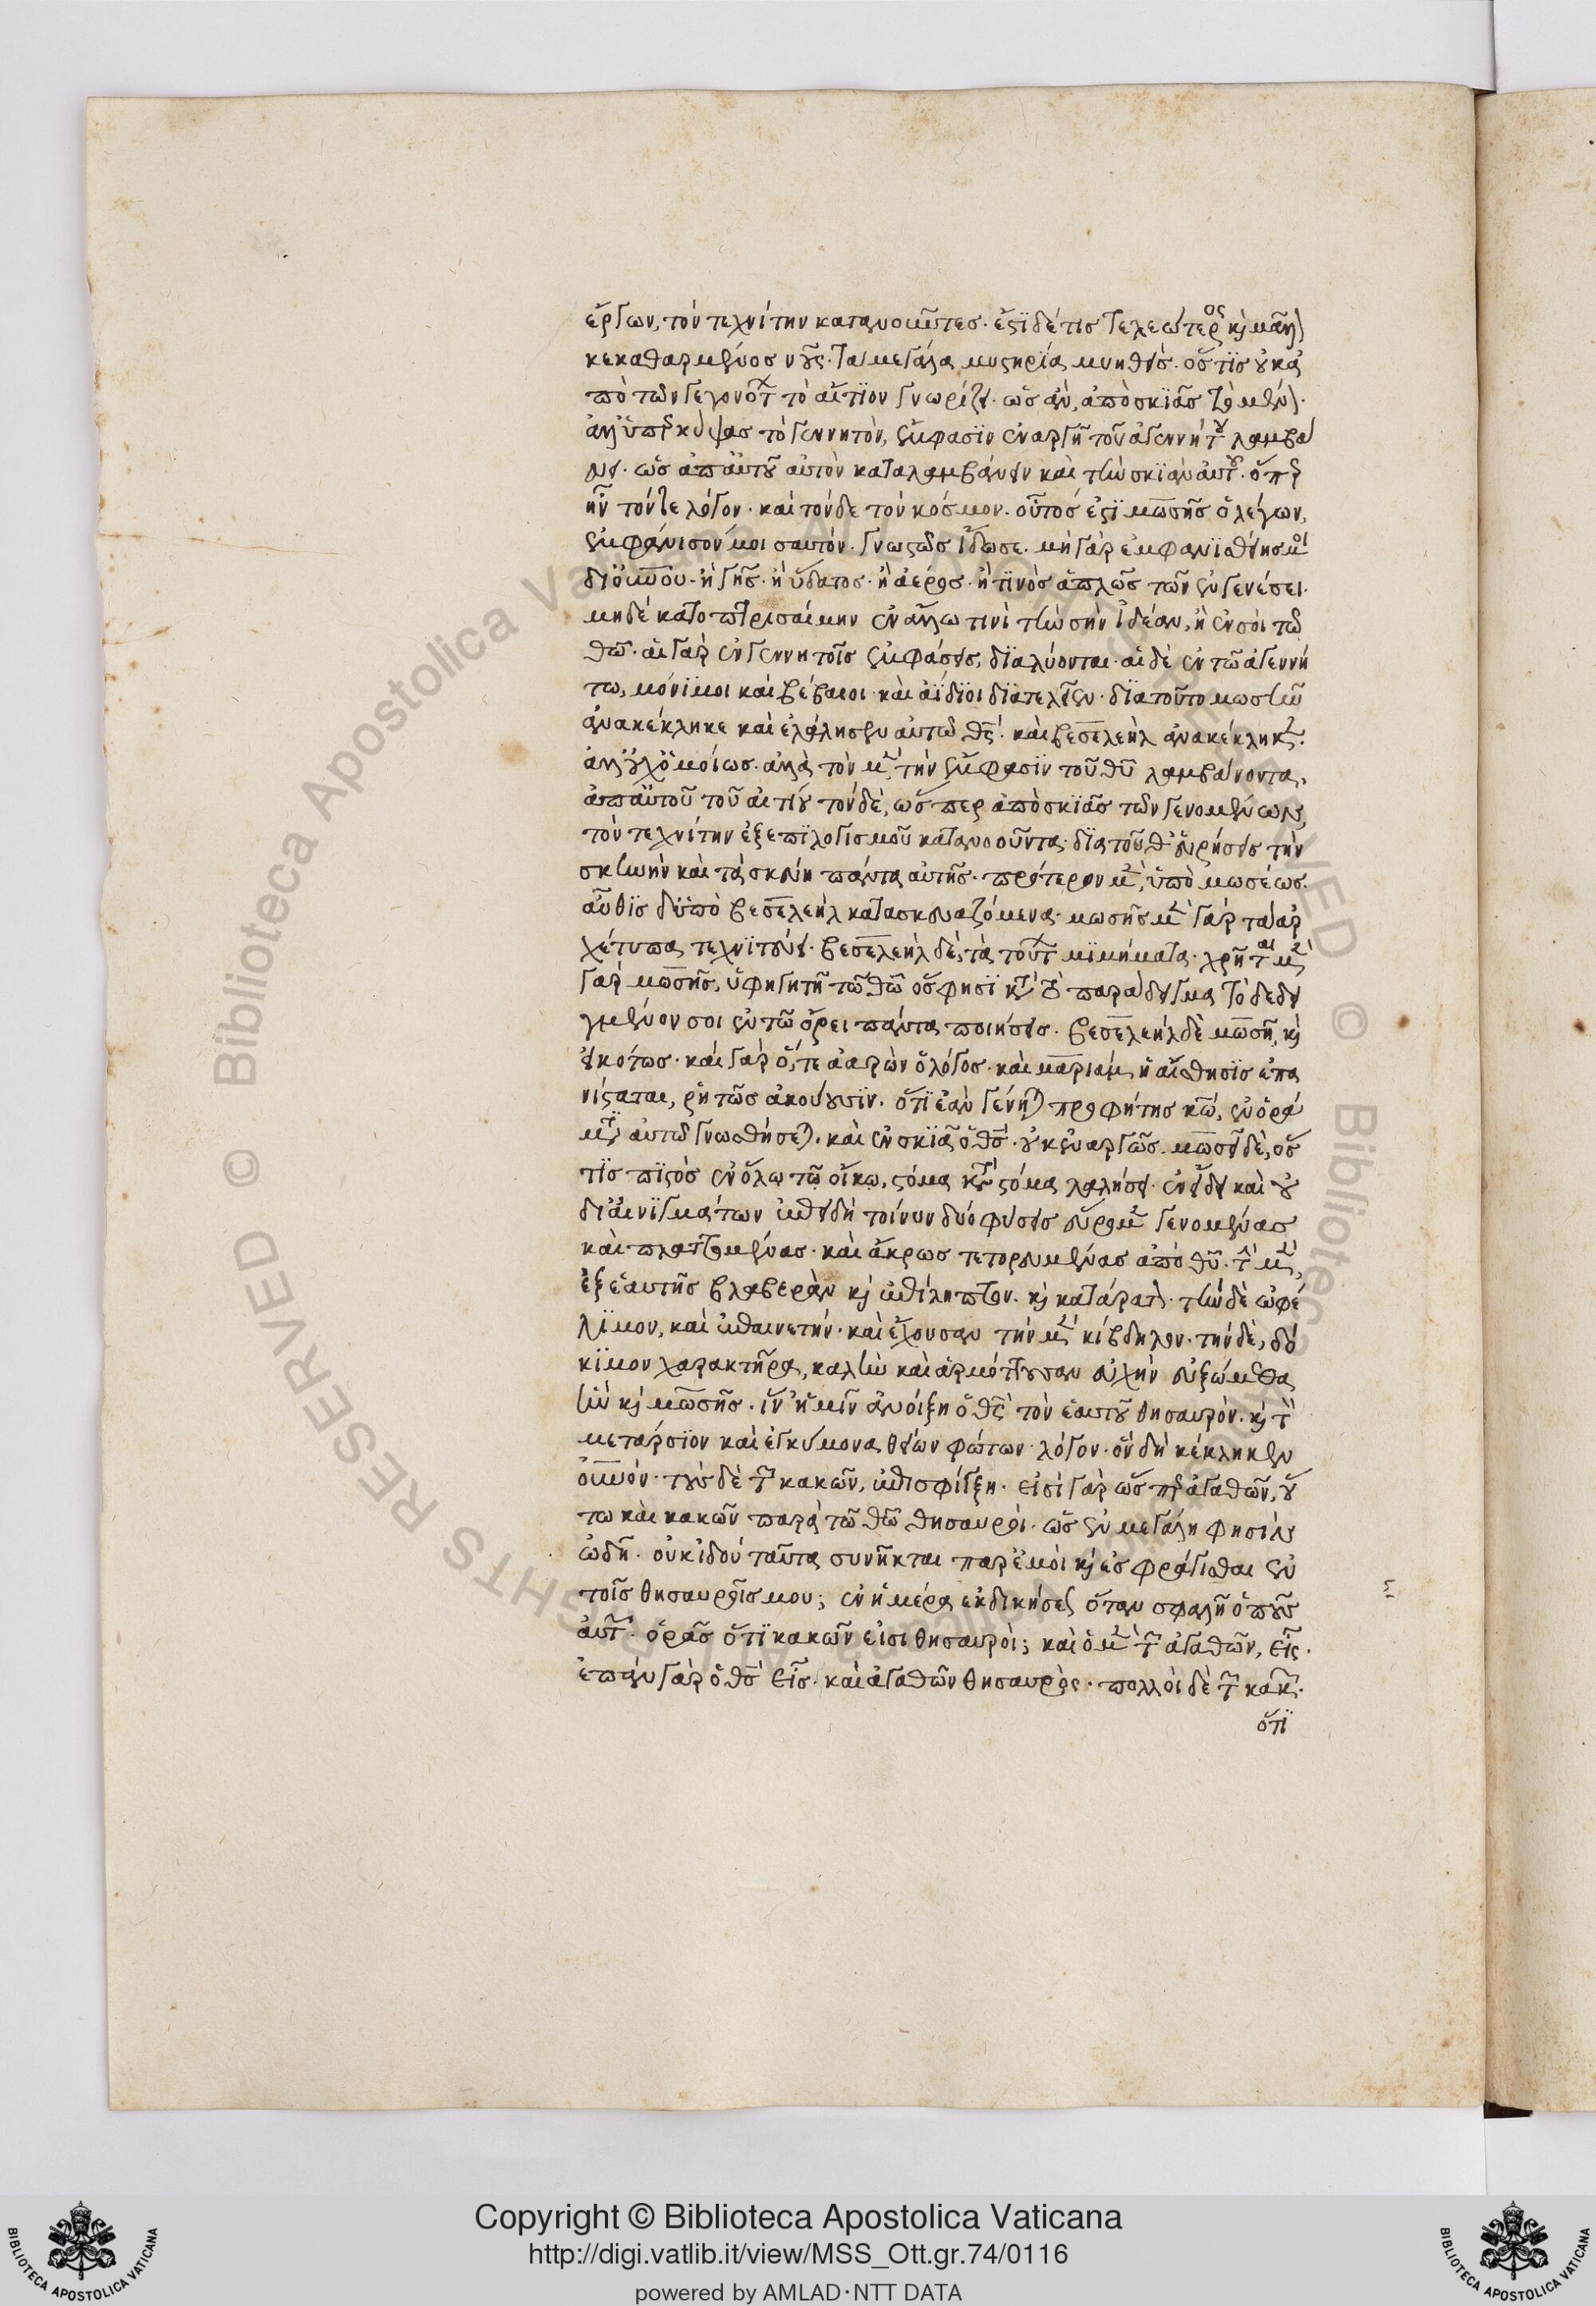 ἔργων, τὸν τεχνίτην κατανοοῦντες. ἔστι δέ τις τελεώτερος καὶ μᾶλλον
κεκαθαρμένος νοῦς. τὰ μεγάλα μυστήρια μυηθείς. ὅστις οὐκ ἀ
πὸ τῶν γεγονότων τὸ αἴτιον γνωρίζει. ὡς ἂν, ἀπὸ σκιᾶς τὸ μένον.
ἀλλ' ὑπερκύψας τὸ γεννητὸν, ἔμφασιν ἐναργῆ τοῦ ἀγεννήτου λαμβά
νει. ὡς ἀπ' αὐτοῦ αὐτὸν καταλαμβάνειν καὶ τὴν σκιὰν αὐτοῦ. ὅπερ
ἦν τόν τε λόγον. καὶ τόνδε τὸν κόσμον. οὗτός ἐστι μωσῆς ὁ λέγων,
ἐμφάνισόν μοι σαυτόν. γνωστῶς ἴδω σε. μὴ γὰρ ἐμφανισθείης μοι
δι' οὐνοῦ. ἢ γῆς. ἢ ὕδατος. ἢ ἀέρος. ἤ τινος ἁπλῶς τῶν ἐν γενέσει.
μηδὲ κατοπτρισαίμην ἐν ἄλλω τινὶ τὴν σὴν ἰδέαν, ἢ ἐν σοὶ τῶ
θῶ. αἱ γὰρ ἐν γεννητοῖς ἐμφάσεις, διαλύονται. αἱ δὲ ἐν τῶ ἀγεννή
τω, μόνιμοι καὶ βέβαιοι καὶ ἀΐδιοι διατελεῖεν. διὰ τοῦτο μωσῆν
ἀνακέκληκε καὶ ἐλάλησεν αὐτῶ ὁ θς. καὶ βεσελεὴλ ἀνακέκληκεν.
ἀλλ' οὐχ ὁμοίως. ἀλλὰ τὸν μὲν τὴν ἔμφασιν τοῦ θῦ λαμβάνοντα,
ἀπ' αὐτοῦ τοῦ αἰτίου τὸν δὲ, ὥσπερ ἀπὸ σκιᾶς τῶν γενομένων,
τὸν τεχνίτην ἐξ ἐπιλογισμοῦ κατανοοῦντα. διὰ τοῦθ' εὑρήσεις τὴν
σκηνὴν καὶ τὰ σκεύη πάντα αὐτῆς. πρότερον μὲν, ὑπὸ μωσέως.
αὖθις δ' ὑπὸ βεσελεὴλ κατασκευαζόμενα. μωσῆς μὲν γὰρ τὰ ἀρ
χέτυπα τεχνιτεύει. βεσελεὴλ δὲ, τὰ τούτων μιμήματα. χρῆται μὲν
γὰρ μωσῆς, ὑφηγητῆ τῶ θῶ ὥς φησι κατὰ τὸ παράδειγμα τὸ δεδει
γμένον σοι ἐν τῶ ὄρει πάντα ποιήσεις. βεσελεὴλ δὲ μωσῆ, καὶ
εἰκότως. καὶ γὰρ ὅτε ἀαρὼν ὁ λόγος. καὶ μαριὰμ ἡ αἴσθησις ἐπα
νίσταται, ῥητῶς ἀκούουσιν. ὅτι ἐὰν γένηται προφήτης κῶ, ἐν ὁρά
ματι αὐτῶ γνωσθήσεται. καὶ ἐν σκιᾶ ὁ θς. οὐκ ἐναργῶς. μωσεῖ δὲ, ὅσ
τις πιστὸς ἐν ὅλω τῶ οἴκω, στόμα κατὰ στόμα λαλήσει. ἐν εἴδει καὶ οὐ
δι' αἰνιγμάτων ἐπειδὴ τοίνυν δύο φύσεις εὕρομεν γενομένας
καὶ πλαττομένας. καὶ ἄκρως τετορευμένας ἀπὸ θῦ. τὴν μὲν,
ἐξ ἑαυτῆς βλαβερὰν καὶ ἐπίληπτον. καὶ κατάρατον. τὴν δὲ ὠφέ
λιμον, καὶ ἐπαινετήν. καὶ ἔχουσαν τὴν μὲν κίβδηλον. τὴν δὲ, δό
κιμον χαρακτῆρα, καλὴν καὶ ἁρμόττουσαν εὐχὴν εὐξώμεθα
ἣν καὶ μωσῆς. ἵν' ἡμῖν ἀνοίξη ὁ θς τὸν ἑαυτοῦ θησαυρόν. καὶ τὸν
μετάρσιον καὶ ἐγκύμονα θείων φώτων λόγον. ὃν δὴ κέκληκεν
οὐνόν. τοὺς δὲ τῶν κακῶν, ἐπισφίγξη. εἰσὶ γὰρ ὥσπερ ἀγαθῶν, οὕ
τω καὶ κακῶν παρὰ τῶ θῶ θησαυροί. ὡς ἐν μεγάλη φησὶν
ὠδῆ. οὐκ ἰδοὺ ταῦτα συνῆκται παρ' ἐμοὶ καὶ ἐσφράγισται ἐν
τοῖς θησαυροῖς μου; ἐν ἡμέρα ἐκδικήσεως ὅταν σφαλῆ ὁ ποῦς
αὐτῶν. ὁρᾶς ὅτι κακῶν εἰσι θησαυροί; καὶ ὁ μὲν τῶν ἀγαθῶν, εἷς.
ἐπεὶ γὰρ ὁ θς εἷς. καὶ ἀγαθῶν θησαυρὸς. πολλοὶ δὲ τῶν κακῶν.
ὅτι
Copyright © Biblioteca Apostolica Vaticana
http://digi.vatlib.it/view/MSS_Ott.gr.74/0116
powered by AMLAD·NTT DATA